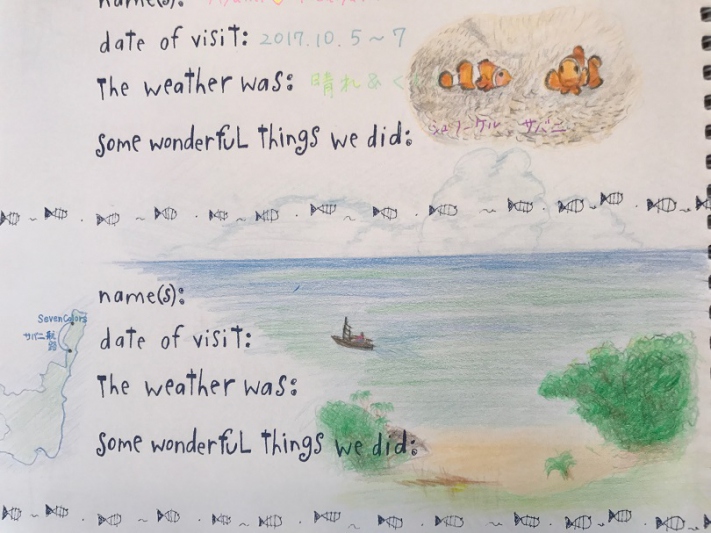 name(s):
date of visit: 2017.10.5~7
The weather was: 晴れ&く
some wonderful things we did: シュノーケル、サバニ
name(s):
SevenColors
サバニ航路
date of visit:
The weather was:
some wonderful things we did: